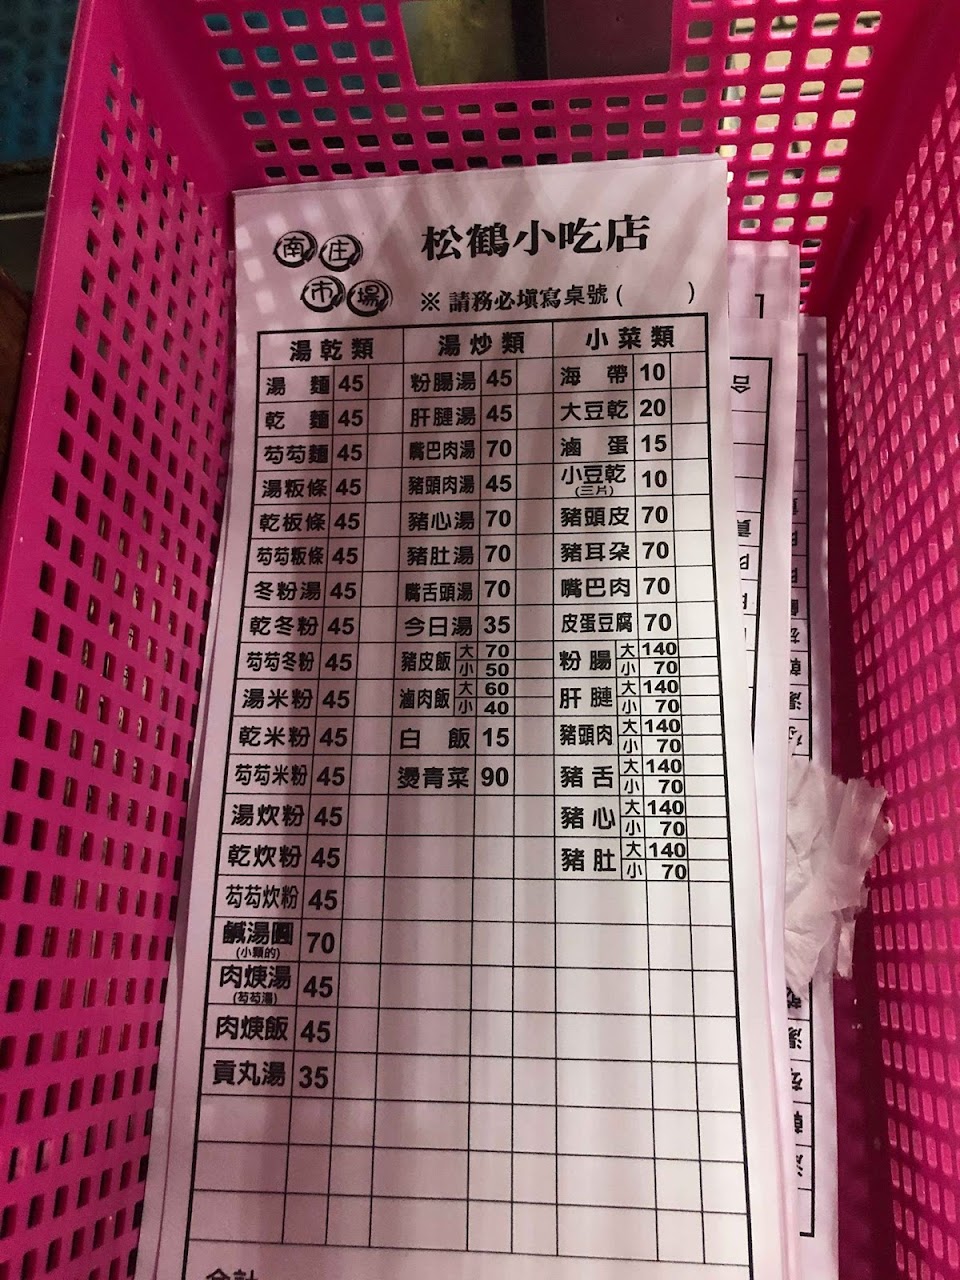 松鶴小吃店
南庄
市場
※請務必填寫桌號( )
湯乾類 湯炒類 小菜類
湯麵 45 粉腸湯 45 海帶 10
乾麵 45 肝腱湯 45 大豆乾 20
芶芶麵 45 嘴巴肉湯 70 滷蛋 15
湯粄條 45 豬頭肉湯 45 小豆乾(三片) 10
乾板條 45 豬心湯 70 豬頭皮 70
芶芶粄條 45 豬肚湯 70 豬耳朵 70
冬粉湯 45 嘴舌頭湯 70 嘴巴肉 70
乾冬粉 45 今日湯 35 皮蛋豆腐 70
芶芶冬粉 45 豬皮飯 大 70 小 50 粉腸 大 140 小 70
湯米粉 45 滷肉飯 大 60 小 40 肝腱 大 140 小 70
乾米粉 45 白飯 15 豬頭肉 大 140 小 70
芶芶米粉 45 燙青菜 90 豬舌 大 140 小 70
湯炊粉 45 豬心 大 140 小 70
乾炊粉 45 豬肚 大 140 小 70
芶芶炊粉 45
鹹湯圓(小顆的) 70
肉焿湯(芶芶湯) 45
肉焿飯 45
貢丸湯 35